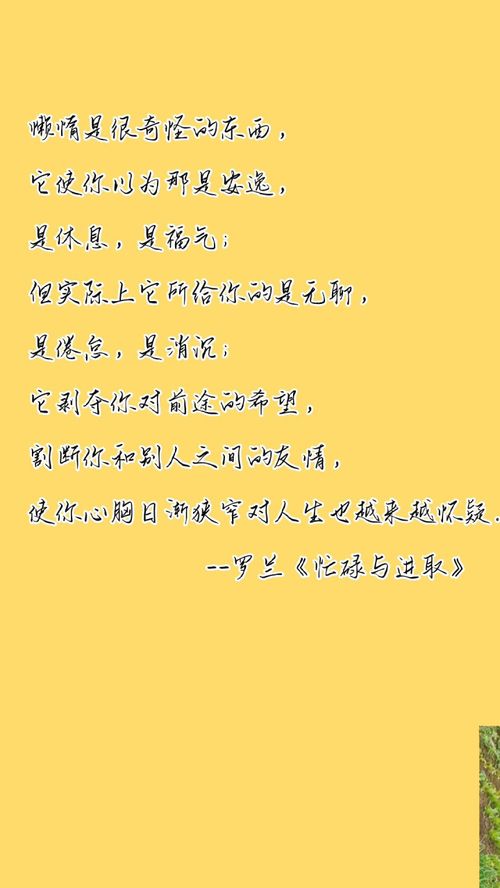 懒惰是很奇怪的东西，
它使你以为那是安逸，
是休息，是福气；
但实际上它所给你的是无聊，
是倦怠，是消沉；
它剥夺你对前途的希望，
割断你和别人之间的友情，
使你心胸日渐狭窄对人生也越来越怀疑.
--罗兰《忙碌与进取》